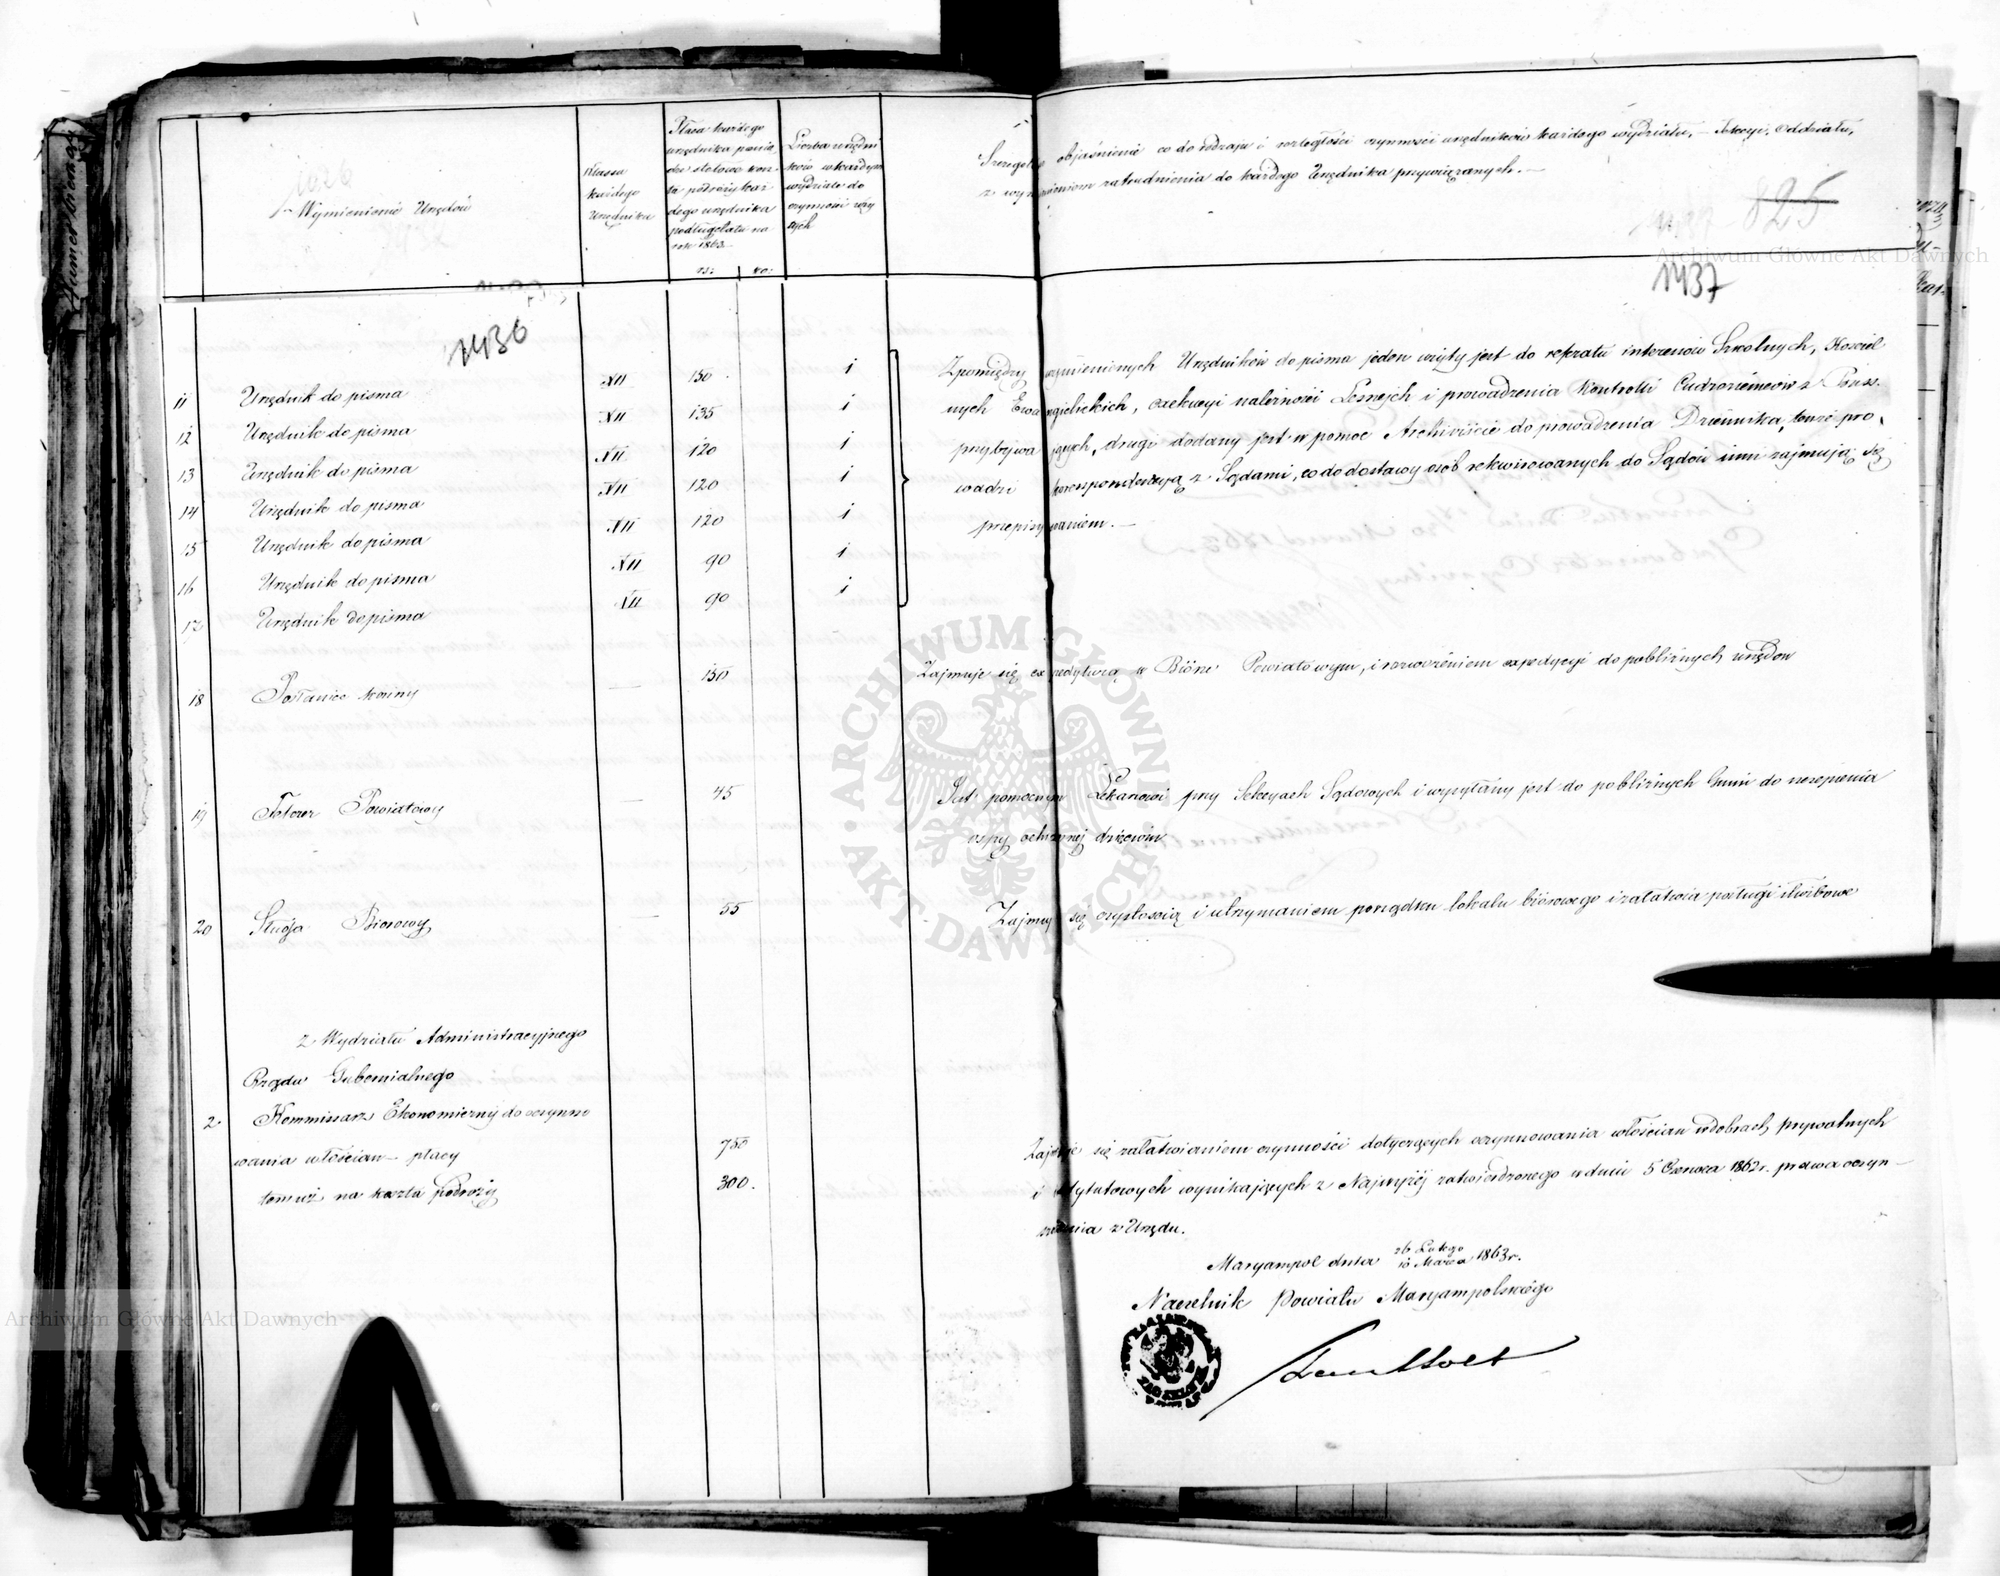 Wymienienie Urzędów
Klassa
każdego
Urzędnika
Płaca każdego
urzędnika
podług etatu na
rok 1863.
rs: ko:
Liczba urzędni
ków w każdym
wydziale do
czynności uży
tych
objaśnienie co do rodzaju i rozległości czynności urzędników każdego wydziału, – Sekcyi, Oddziału,
zatrudnienia do każdego Urzędnika przywiązanych. –
825
1436
1437
11 Urzędnik do pisma XII 150 1
12 Urzędnik do pisma XII 135 1
13 Urzędnik do pisma XII 120 1
14 Urzędnik do pisma XII 120 1
15 Urzędnik do pisma XII 120 1
16 Urzędnik do pisma XII 90 1
17 Urzędnik do pisma XII 90 1
Zpomiędzy wymienionych Urzędników do pisma jeden użyty jest do referatu interesów Szkolnych, Kościel
nych Ewangielickich, exekucyi należności Leśnych i prowadzenia Kontrolli Cudzoziemców z Pruss.
przybywa jących, drugi dodany jest w pomoc Archiwiście do prowadzenia Dziennika, tenże pro-
wadzi korespondencyą z Sądami, co do dostawy osób rekwirowanych do Sądów inni zajmują się
przepisywaniem. –
18 Posłaniec konny — 150
Zajmuje się expedyturą w Biórze Powiatowym, i rozwożeniem expedycyi do pobliżnych urzędów
19 Felczer Powiatowy — 45
Jest pomocnym Lekarzowi przy Sekcyach Sądowych i wysyłany jest do pobliżnych Gmin do szczepienia
ospy ochronnej dzieciom
20 Sługa Biórowy — 55
Zajmuje się czystością i utrzymaniem porządku lokalu biórowego i załatwia posługi służbowe
z Wydziału Administracyjnego
Rządu Gubernialnego
2 Kommissarz Ekonomiczny do oczynszo
wania włościan – płacy 750
temuż na koszta podróży 300.
Zajmuje się załatwianiem czynności dotyczących oczynszowania włościan w dobrach prywatnych
i instytutowych wynikających z Najwyżej zatwierdzonego w dniu 5 Czerwca 1862 r. prawa oczyn-
szowania z Urzędu.
Maryampol dnia 26 Lutego / 10 Marca 1863 r.
Naczelnik Powiatu Maryampolskiego
ARCHIWUM GŁÓWNE AKT DAWNYCH
Archiwum Główne Akt Dawnych
Archiwum Główne Akt Dawnych